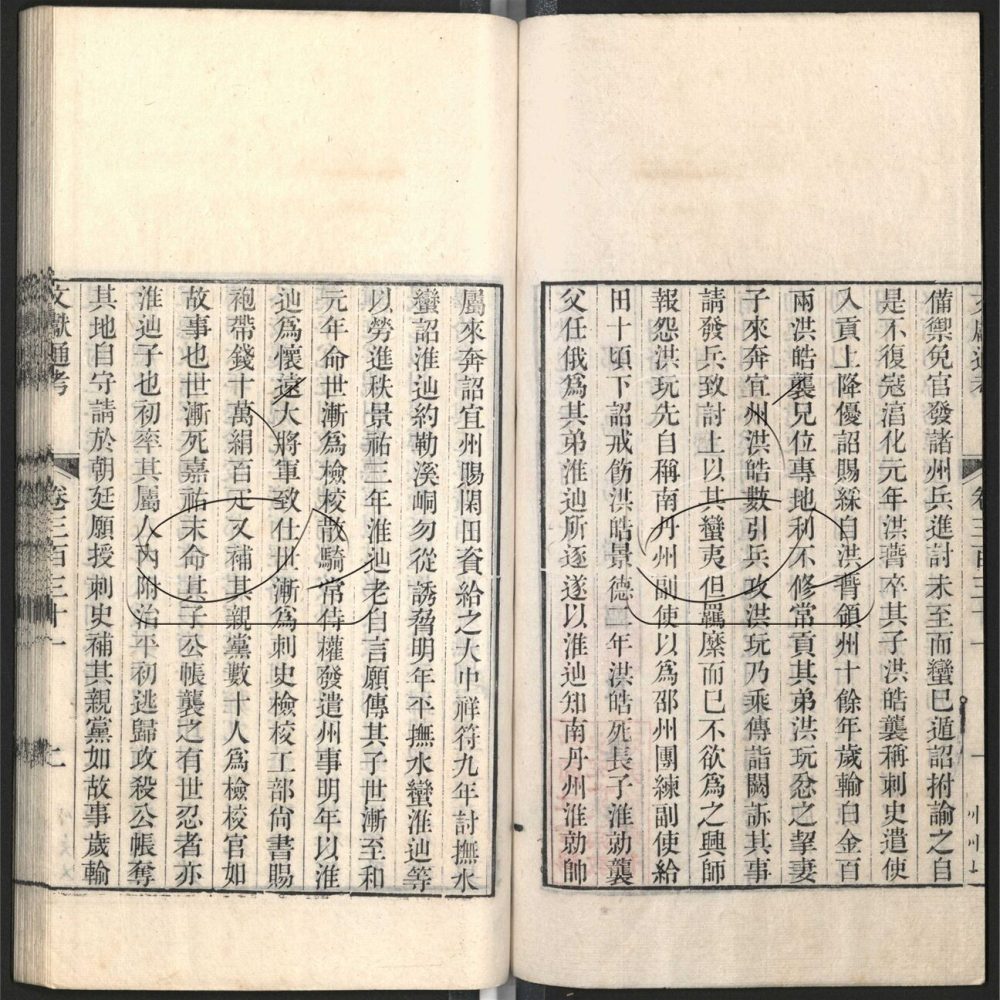 備禦免官發諸州兵進討未至而蠻巳遁詔拊諭之自
是不復寇湻化元年洪㬱卒其子洪皓襲稱刺史遣使
入貢上降優詔賜綵自洪㬱領州十餘年歲輸白金百
兩洪皓襲兄位專地利不修常貢其弟洪玩忿之挈妻
子來奔宜州洪皓數引兵攻洪玩乃乘傳詣闕訴其事
請發兵致討上以其蠻夷但羈縻而巳不欲爲之興師
報怨洪玩先自稱南丹州副使以爲邵州團練副使給
田十頃下詔戒飭洪皓景德二年洪皓死長子淮勍襲
父任俄爲其弟淮辿所逐遂以淮辿知南丹州淮勍帥
屬來奔詔宜州賜閑田資給之大中祥符九年討撫水
蠻詔淮辿約勒溪峒勿從誘脅明年平撫水蠻淮辿等
以勞進秩景祐三年淮辿老自言願傳其子世漸至和
元年命世漸爲檢校散騎常侍權發遣州事明年以淮
辿爲懷遠大將軍致仕世漸爲刺史檢校工部尙書賜
袍帶錢十萬絹百疋又補其親黨數十人爲檢校官如
故事也世漸死嘉祐末命其子公帳襲之有世忍者亦
淮辿子也初率其屬人內附治平初逃歸攻殺公帳奪
其地自守請於朝廷願授刺史補其親黨如故事歲輸
文獻通考 卷三百三十一